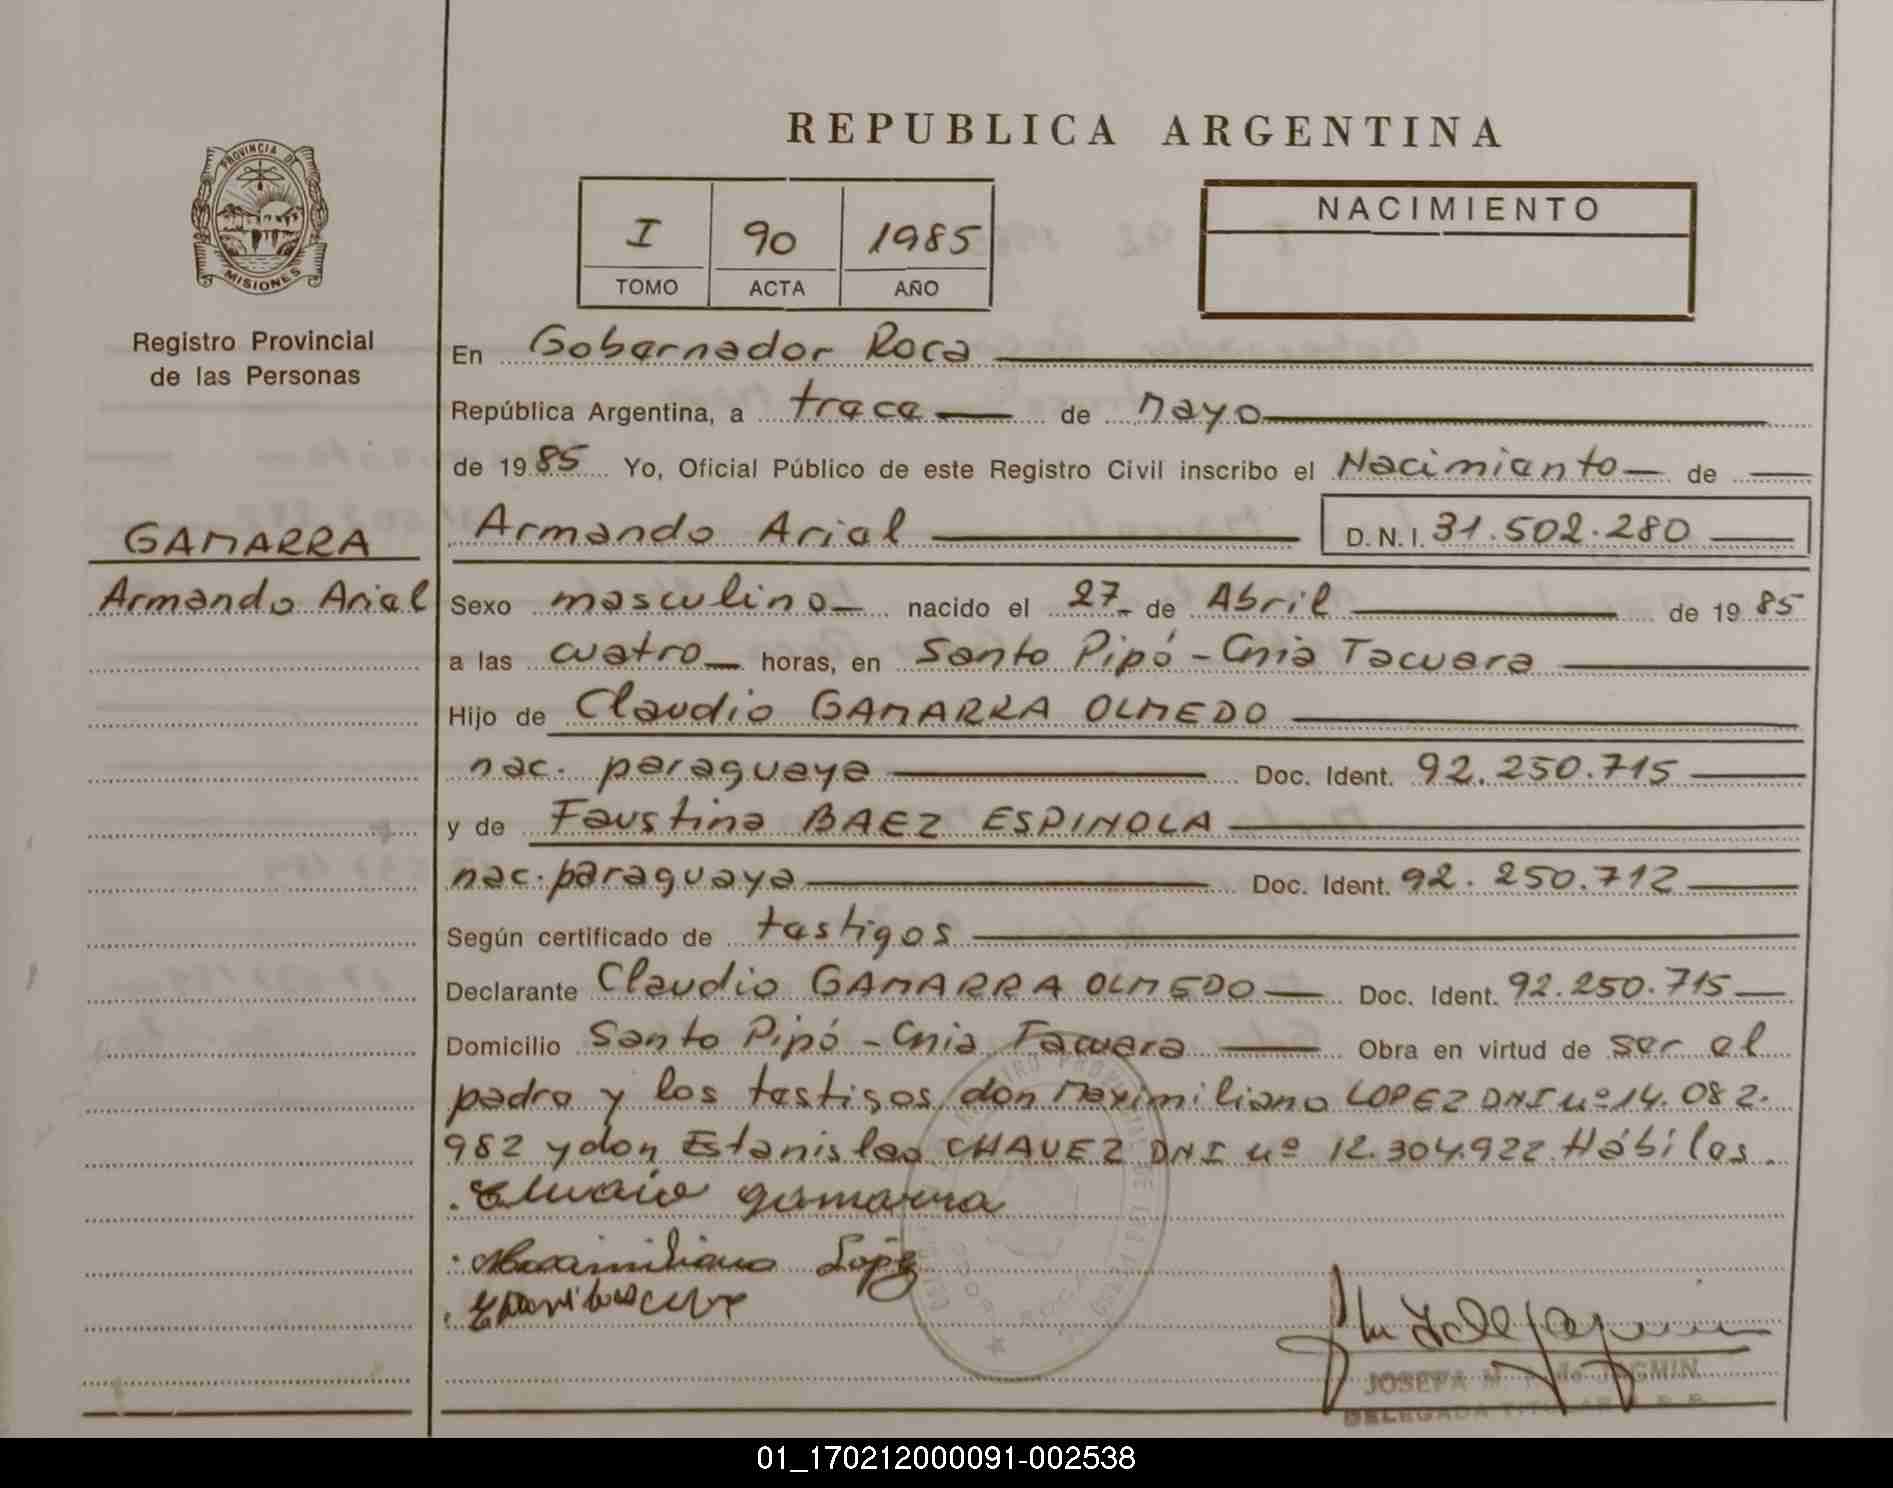 REPUBLICA ARGENTINA
PROVINCIA DE
MISIONES
Registro Provincial
de las Personas
I 90 1985
TOMO ACTA AÑO
NACIMIENTO
En Gobernador Roca
República Argentina, a trece de Mayo
de 1985 Yo, Oficial Público de este Registro Civil inscribo el Nacimiento de
GAMARRA
Armando Ariel D.N.I. 31.502.280
Armando Ariel
Sexo masculino nacido el 27 de Abril de 1985
a las cuatro horas, en Santo Pipó - Cnia Tacuara
Hijo de Claudio GAMARRA OLMEDO
nac. paraguaya Doc. Ident. 92.250.715
y de Faustina BAEZ ESPINOLA
nac. paraguaya Doc. Ident. 92.250.712
Según certificado de testigos
Declarante Claudio GAMARRA OLMEDO Doc. Ident. 92.250.715
Domicilio Santo Pipó - Cnia Tacuara Obra en virtud de ser el
padre y los testigos don Maximiliano LOPEZ DNI nº 14.082.
982 y don Estanislao CHAVEZ DNI nº 12.304.922 Hábiles.
gamarra
Maximiliano López
JOSEFA M. de JAGMIN
DELEGADA TITULAR
01_170212000091-002538